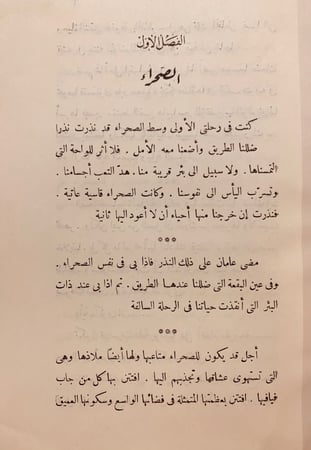 الفصل الأول
الصحراء
كنت فى رحلتى الأولى وسط الصحراء قد نذرت نذرا
ضللنا الطريق وأضعنا معه الأمل . فلا أثر للواحة التى
التمسناها . ولا سبيل الى بئر قريبة منا . هدّ التعب أجسامنا .
وتسرّب اليأس الى نفوسنا . وكانت الصحراء قاسية عاتية .
فنذرت إن خرجنا منها أحياء أن لا أعود اليها ثانية
***
مضى عامان على ذلك النذر فاذا بى فى نفس الصحراء .
وفى عين البقعة التى ضللنا عندها الطريق . ثم اذا بى عند ذات
البئر التى أنقذت حياتنا فى الرحلة السالفة
***
أجل قد يكون للصحراء متاعبها ولها أيضًا ملاذها وهى
التى تستهوى عشاقها وتجذبهم اليها . افتتن بها كل من جاب
فيافيها . افتتن بعظمتها المتمثلة فى فضائها الواسع وسكونها العميق